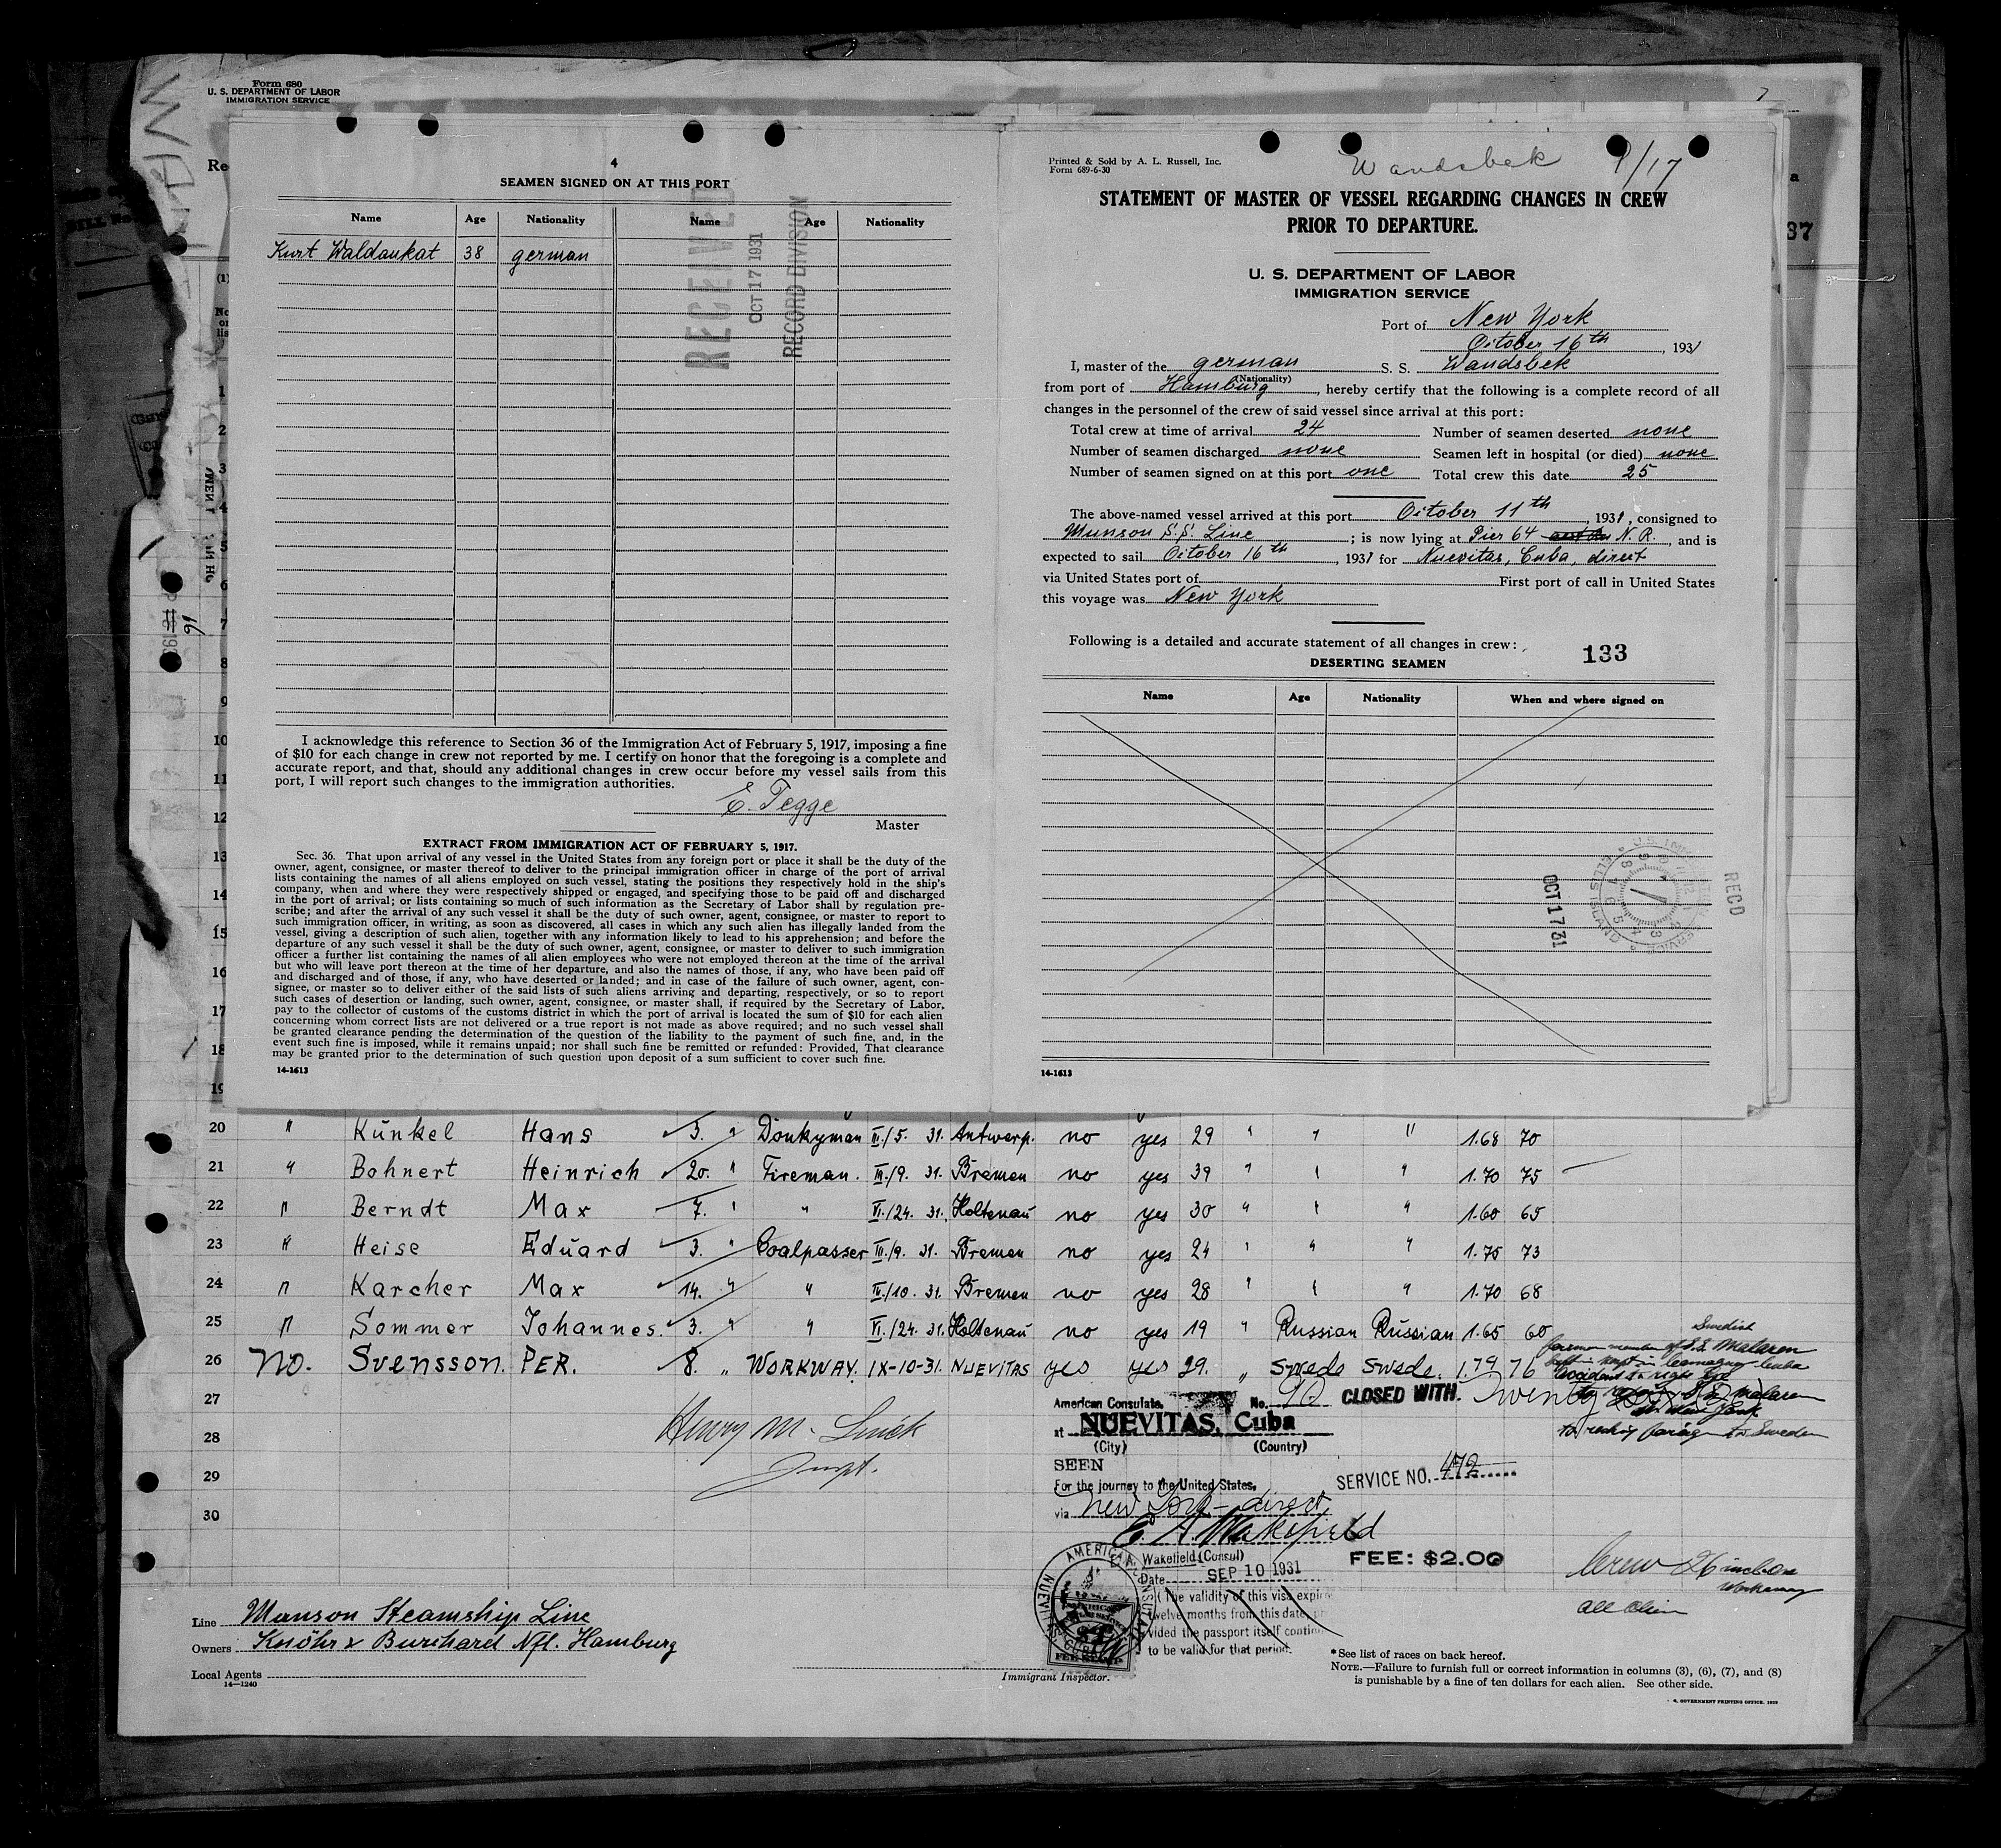 Form 680
U. S. DEPARTMENT OF LABOR
IMMIGRATION SERVICE
4
SEAMEN SIGNED ON AT THIS PORT
Name Age Nationality Name Age Nationality
Kurt Waldaukat 38 german
RECEIVED
OCT 17 1931
RECORD DIVISION
I acknowledge this reference to Section 36 of the Immigration Act of February 5, 1917, imposing a fine
of $10 for each change in crew not reported by me. I certify on honor that the foregoing is a complete and
accurate report, and that, should any additional changes in crew occur before my vessel sails from this
port, I will report such changes to the immigration authorities.
E. Tegge
Master
EXTRACT FROM IMMIGRATION ACT OF FEBRUARY 5, 1917.
Sec. 36. That upon arrival of any vessel in the United States from any foreign port or place it shall be the duty of the
owner, agent, consignee, or master thereof to deliver to the principal immigration officer in charge of the port of arrival
lists containing the names of all aliens employed on such vessel, stating the positions they respectively hold in the ship's
company, when and where they were respectively shipped or engaged, and specifying those to be paid off and discharged
in the port of arrival; or lists containing so much of such information as the Secretary of Labor shall by regulation pre-
scribe; and after the arrival of any such vessel it shall be the duty of such owner, agent, consignee, or master to report to
such immigration officer, in writing, as soon as discovered, all cases in which any such alien has illegally landed from the
vessel, giving a description of such alien, together with any information likely to lead to his apprehension; and before the
departure of any such vessel it shall be the duty of such owner, agent, consignee, or master to deliver to such immigration
officer a further list containing the names of all alien employees who were not employed thereon at the time of the arrival
but who will leave port thereon at the time of her departure, and also the names of those, if any, who have been paid off
and discharged and of those, if any, who have deserted or landed; and in case of the failure of such owner, agent, con-
signee, or master so to deliver either of the said lists of such aliens arriving and departing, respectively, or so to report
such cases of desertion or landing, such owner, agent, consignee, or master shall, if required by the Secretary of Labor,
pay to the collector of customs of the customs district in which the port of arrival is located the sum of $10 for each alien
concerning whom correct lists are not delivered or a true report is not made as above required; and no such vessel shall
be granted clearance pending the determination of the question of the liability to the payment of such fine, and, in the
event such fine is imposed, while it remains unpaid; nor shall such fine be remitted or refunded: Provided, That clearance
may be granted prior to the determination of such question upon deposit of a sum sufficient to cover such fine.
14-1613
Printed & Sold by A. L. Russell, Inc.
Form 689-6-30
Wandsbek 9/17
STATEMENT OF MASTER OF VESSEL REGARDING CHANGES IN CREW
PRIOR TO DEPARTURE.
U. S. DEPARTMENT OF LABOR
IMMIGRATION SERVICE
Port of New York
October 16th, 1931
I, master of the german S. S. Wandsbek
(Nationality)
from port of Hamburg, hereby certify that the following is a complete record of all
changes in the personnel of the crew of said vessel since arrival at this port:
Total crew at time of arrival 24 Number of seamen deserted none
Number of seamen discharged none Seamen left in hospital (or died) none
Number of seamen signed on at this port one Total crew this date 25
The above-named vessel arrived at this port October 11th, 1931, consigned to
Munson S.S. Line; is now lying at Pier 64 N. R., and is
expected to sail October 16th, 1931 for Nuevitas, Cuba, direct
via United States port of First port of call in United States
this voyage was New York
Following is a detailed and accurate statement of all changes in crew:
133
DESERTING SEAMEN
Name Age Nationality When and where signed on
OCT 17 31
RECD
ELLIS ISLAND
14-1613
1
2
3
4
5
6
7
8
9
10
11
12
13
14
15
16
17
18
19
20 " Künkel Hans 5. " Donkyman III./5. 31. Antwerp. no yes 29 " " " 1.68 70
21 " Bohnert Heinrich 20. " Fireman. III./9. 31. Bremen no yes 39 " " " 1.70 75
22 " Berndt Max 7. " " VI./24. 31. Holtenau no yes 30 " " " 1.60 65
23 " Heise Eduard 3. " Coalpasser III./9. 31. Bremen no yes 24 " " " 1.75 73
24 " Karcher Max 14. " " III./10. 31. Bremen no yes 28 " " " 1.70 68
25 " Sommer Johannes. 3. " " VI./24. 31. Holtenau no yes 19 " Russian Russian 1.65 60
26 No. Svensson. PER. 8. " WORKWAY. IX-10-31. NUEVITAS yes yes 29. " Swede Swede. 1.79 76
Swedish
member of S.S. Malaren
27
28
29
30
Henry M.
Inspt.
American Consulate, No. CLOSED WITH. Twenty
at NUEVITAS, Cuba
(City) (Country)
SEEN
For the journey to the United States,
via New York - direct
E. A. Wakefield
Wakefield (Consul)
Date SEP 10 1931
(The validity of this visa expire
twelve months from this date, pr
vided the passport itself contin
to be valid for that period.
AMERICAN CONSULATE
NUEVITAS, CUBA
FEE STAMP
SERVICE NO. 472
FEE: $2.00
to Sweden
Crew
workaway
All Alien
Line Munson Steamship Line
Owners Knöhr & Burchard Nfl. Hamburg
Local Agents
14—1240
Immigrant Inspector.
*See list of races on back hereof.
NOTE.—Failure to furnish full or correct information in columns (3), (6), (7), and (8)
is punishable by a fine of ten dollars for each alien. See other side.
U. S. GOVERNMENT PRINTING OFFICE. 1929